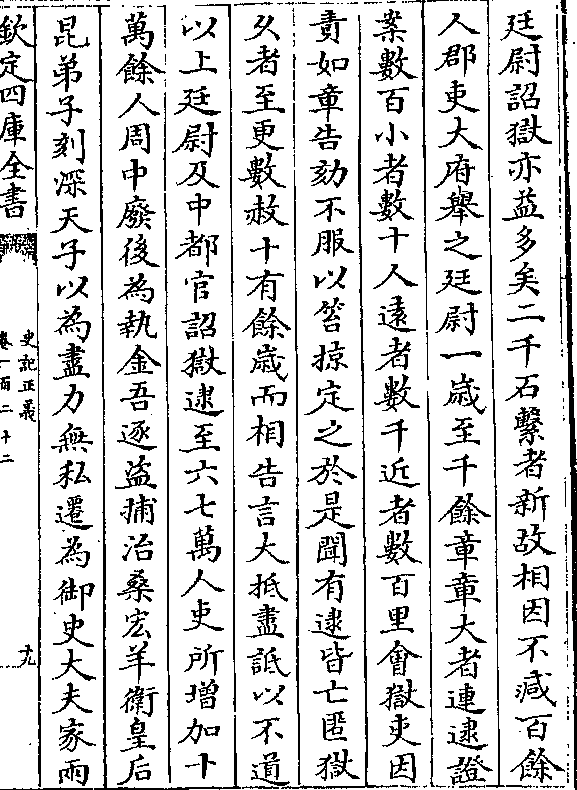 廷尉詔獄亦益多矣二千石繫者新故相因不減百餘
人郡吏大府舉之廷尉一歲至千餘章章大者連逮證
案數百小者數十人遠者數千近者數百里會獄吏因
責如章告劾不服以笞掠定之於是聞有逮皆亡匿獄
乆者至更數赦十有餘歲而相告言大抵盡詆以不道
以上廷尉及中都官詔獄逮至六七萬人吏所增加十
萬餘人周中廢後為執金吾逐盜捕治桑宏羊衛皇后
昆弟子刻深天子以為盡力無私遷為御史大夫家兩
欽定四庫全書
史記正義
卷一百二十二
十九